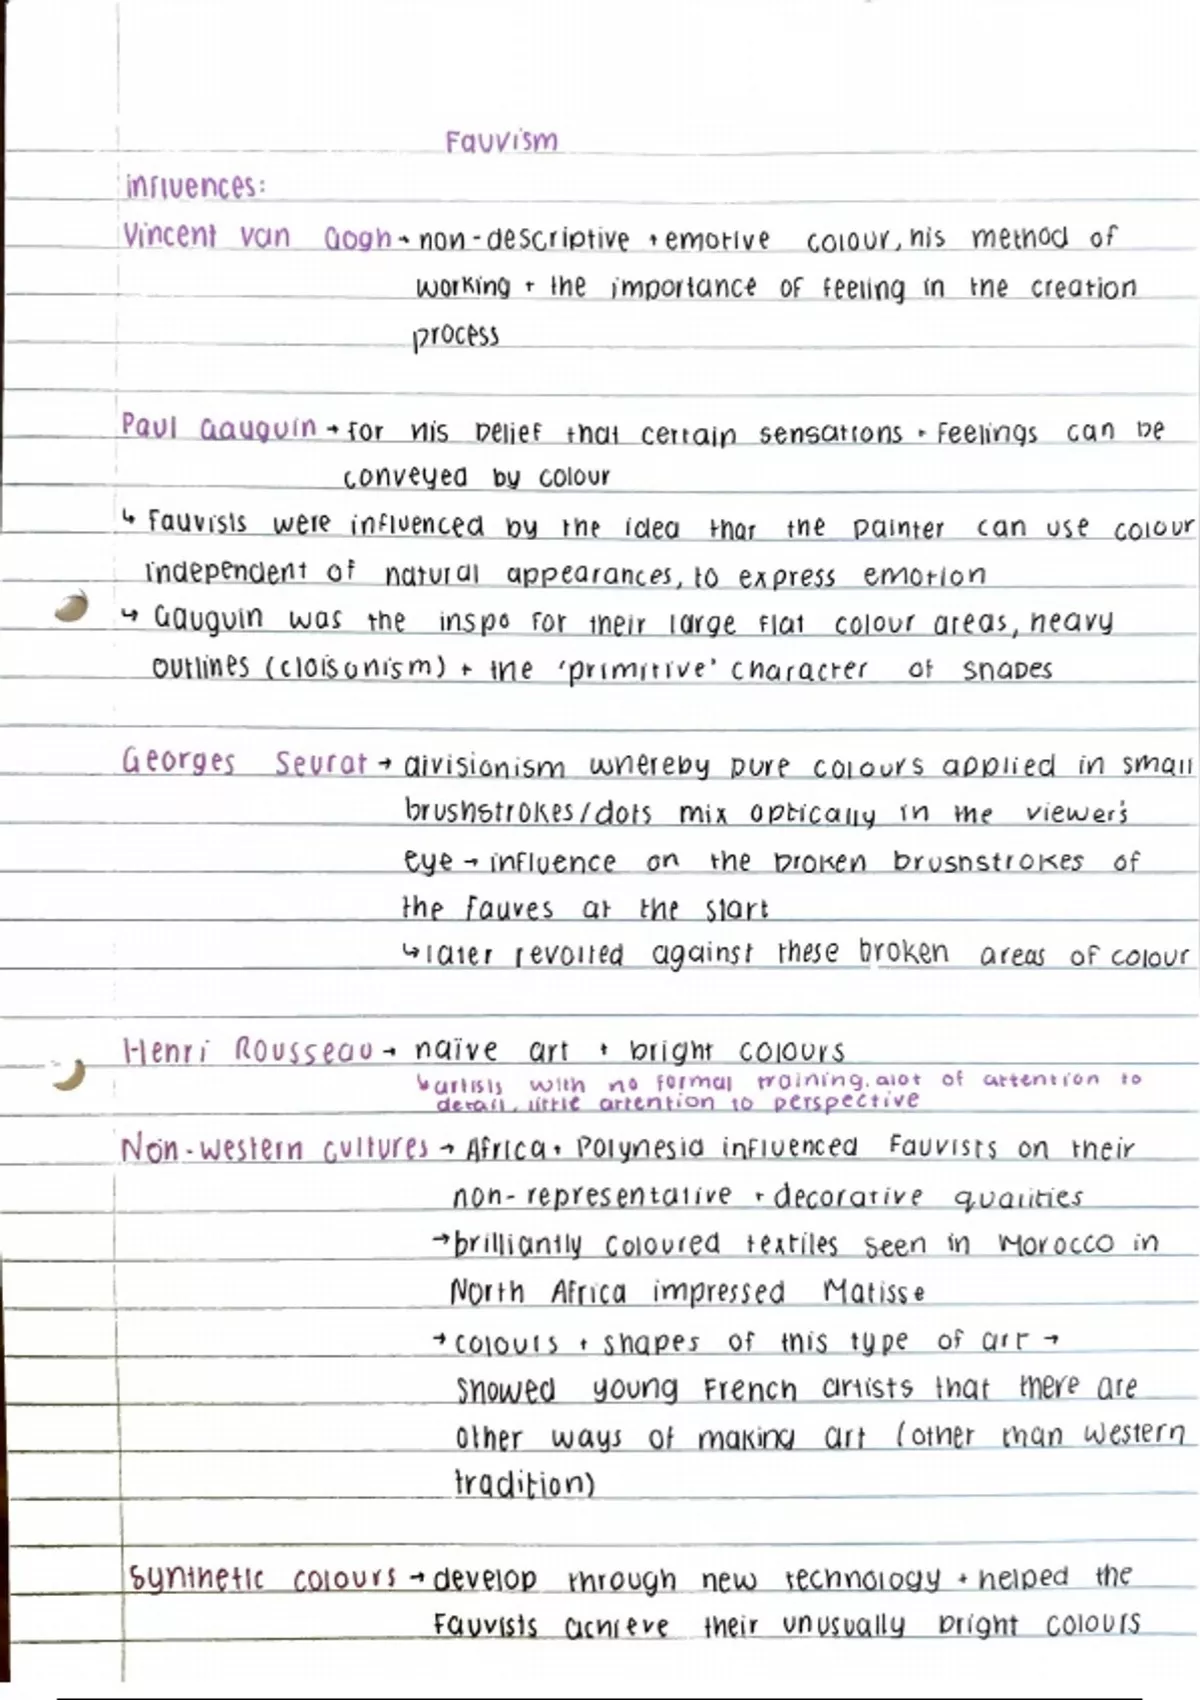 Fauvism
influences:
Vincent van Gogh → non-descriptive + emotive colour, his method of
working + the importance of feeling in the creation
process
Paul Gauguin → for his belief that certain sensations + feelings can be
conveyed by colour
↳ Fauvists were influenced by the idea that the painter can use colour
independent of natural appearances, to express emotion
↳ Gauguin was the inspo for their large flat colour areas, heavy
outlines (cloisonism) + the 'primitive' character of shapes
Georges Seurat → divisionism whereby pure colours applied in small
brushstrokes/dots mix optically in the viewer's
eye → influence on the broken brushstrokes of
the Fauves at the start
↳ later revolted against these broken areas of colour
Henri Rousseau → naïve art + bright colours
↳ artists with no formal training. alot of attention to
detail, little attention to perspective
Non-western cultures → Africa + Polynesia influenced Fauvists on their
non-representative + decorative qualities
→ brilliantly coloured textiles seen in Morocco in
North Africa impressed Matisse
→ colours + shapes of this type of art →
showed young French artists that there are
other ways of making art (other than western
tradition)
Synthetic colours → develop through new technology + helped the
Fauvists achieve their unusually bright colours